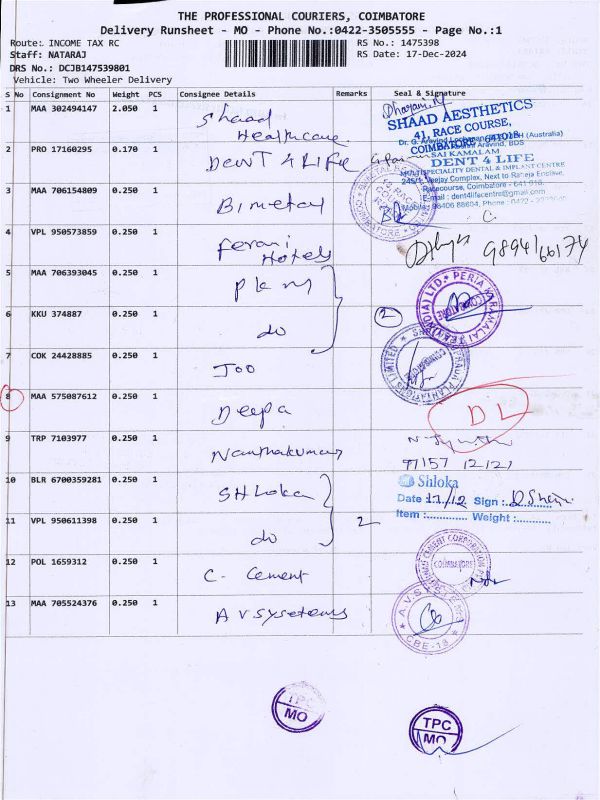 THE PROFESSIONAL COURIERS, COIMBATORE
Delivery Runsheet - MO - Phone No.:0422-3505555 - Page No.:1
Route: INCOME TAX RC
RS No.: 1475398
Staff: NATARAJ
RS Date: 17-Dec-2024
DRS No.: DCJB147539801
Vehicle: Two Wheeler Delivery
S No Consignment No Weight PCS Consignee Details Remarks Seal & Signature
1 MAA 302494147 2.050 1 Shaad Healthcare
SHAAD AESTHETICS
41, RACE COURSE,
COIMBATORE - 641018
2 PRO 17160295 0.170 1 DENT 4 LIFE
SAI KAMALAM
DENT 4 LIFE
MULTI SPECIALITY DENTAL & IMPLANT CENTRE
Racecourse, Coimbatore - 641 018.
E-mail : dent4lifecentre@gmail.com
3 MAA 706154809 0.250 1 Bimetal
4 VPL 950573859 0.250 1 Ferani Hotels
9894166174
5 MAA 706393045 0.250 1 PKM
PERIA KARAMALAI TEA
6 KKU 374887 0.250 1 do 2
7 COK 24428885 0.250 1 Joo
8 MAA 575087612 0.250 1 Deepa DL
9 TRP 7103977 0.250 1 Nanthakumar
97157 12121
10 BLR 6700359281 0.250 1 SHLoka
Shloka
Date 17/12 Sign :
Item : Weight :
11 VPL 950611398 0.250 1 do 2
12 POL 1659312 0.250 1 C. Cement
CEMENT CORPORATION
COIMBATORE
13 MAA 705524376 0.250 1 AV Systems
CBE-18
TPC
MO
TPC
MO